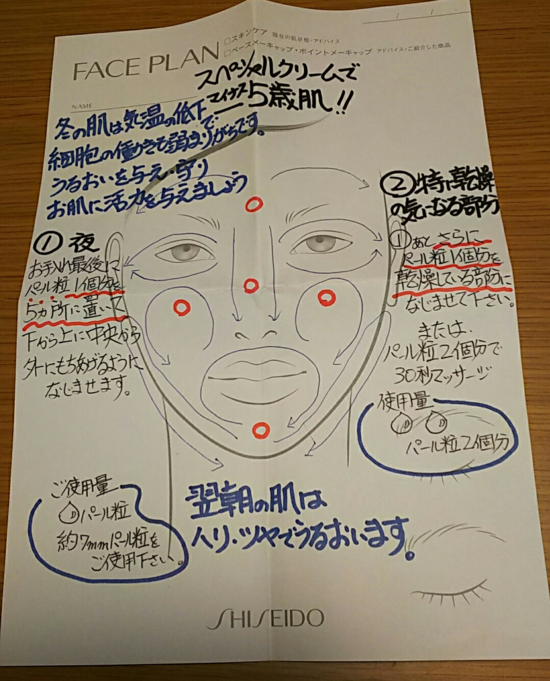 FACE PLAN
□スキンケア 現在の肌状態・アドバイス
□ベースメーキャップ・ポイントメーキャップ アドバイス・ご紹介した商品
NAME
スペシャルクリームで
マイナス5歳肌!!
冬の肌は気温の低下で
細胞の働きも弱まりがちです。
うるおいを与え・守り
お肌に活力を与えましょう
① 夜
お手入れ最後に
パール粒1個分を
5ヵ所に置いて
下から上に中央から
外にもちあげるように
なじませます。
② 特に乾燥
の気になる部分
①あと さらに
パール粒1個分を
乾燥している部分に
なじませて下さい。
または
パール粒2個分で
30秒マッサージ
使用量
パール粒2個分
ご使用量
パール粒
約7mmパール粒を
ご使用下さい。
翌朝の肌は
ハリ・ツヤでうるおいます。
SHISEIDO